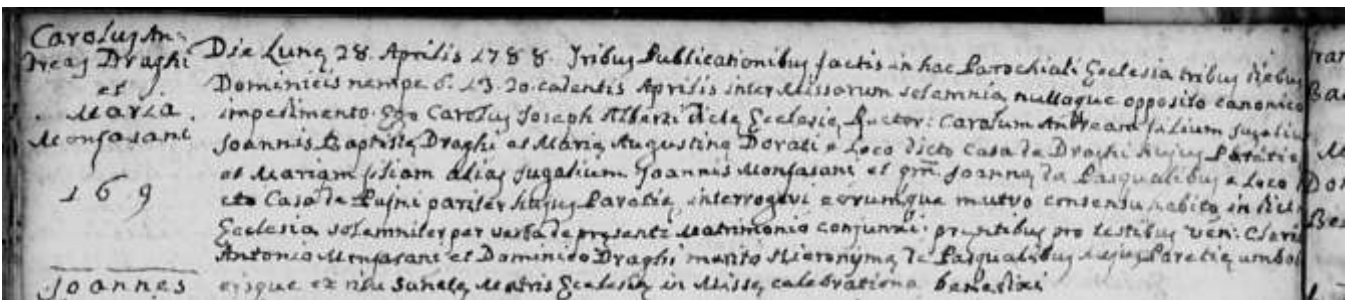 Carolus An-
dreas Draghi
et
Maria
Monfasani
169
Joannes
Die Lunę 28. Aprilis 1788. Tribus Publicationibus factis in hac Parochiali Ecclesia tribus diebus
Dominicis nempe 6. 13. 20. cadentis Aprilis inter Missarum solemnia, nulloque opposito canonico
impedimento. Ego Carolus Joseph Alberti Rector: Carolum Andream filium jugalium
Joannis Baptistę Draghi et Marię Augustinę Dorati e Loco dicto Casa de Draghi hujus Parœtię
et Mariam filiam alias jugalium Joannis Monfasani et qm̃ Joannę de Pasqualibus e Loco
Casa de pariter hujus Parœtię, interrogavi eorumque mutuo consensu habito in
Ecclesia solemniter per verba de pręsenti Matrimonio conjunxi: pręntibus pro testibus Ven: Cleri
Antonio Monfasani et Dominico Draghi marito Hieronymę de Pasqualibus hujus Parœtię
eisque ex ritu Sanctę Matris Ecclesię in Missę celebratione benedixi